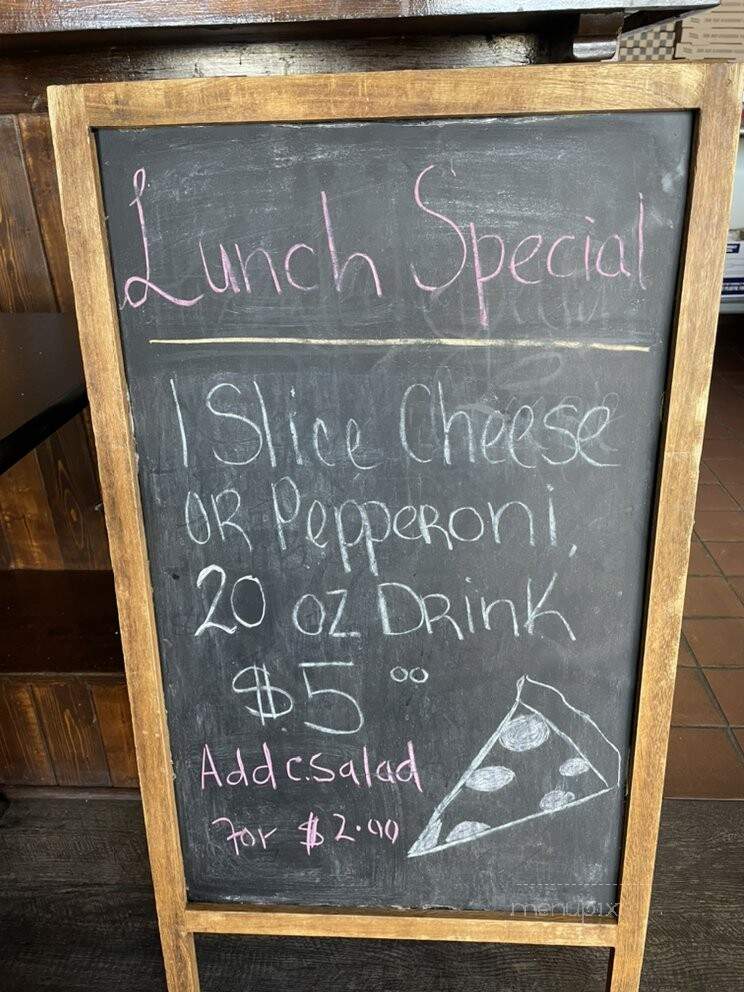 Lunch Special
1 Slice Cheese
OR Pepperoni,
20 oz Drink
$5 00
Add c.salad
For $2.00
menupix